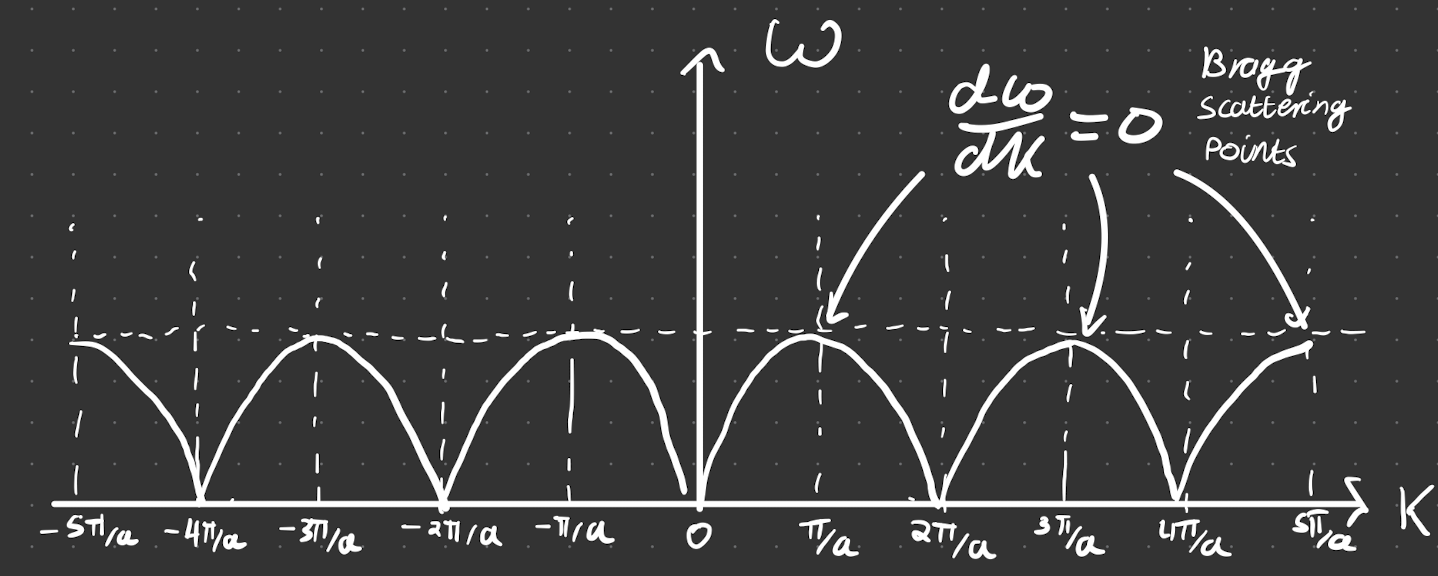 ω
dω/dk = 0
Bragg
Scattering
Points
-5π/a -4π/a -3π/a -2π/a -π/a 0 π/a 2π/a 3π/a 4π/a 5π/a K